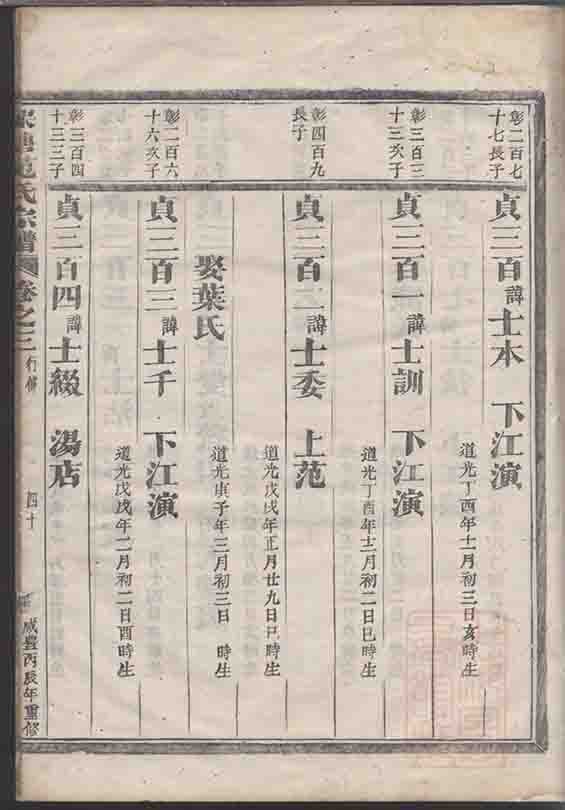 彰二百七
十七長子
貞三百 諱士本 下江演
道光丁酉年十一月初三日亥時生
彰三百三
十三次子
貞三百一 諱士訓 下江演
道光丁酉年十二月初二日巳時生
彰四百九
長子
貞三百二 諱士委 上范
道光戊戌年正月廿九日巳時生
娶葉氏
道光庚子年三月初三日 時生
彰二百六
十六次子
貞三百三 諱士千 下江演
道光戊戌年二月初二日酉時生
彰三百四
十三三子
貞三百四 諱士綴 湯店
范氏宗譜 卷之三 行修
四十
咸豐丙辰年重修